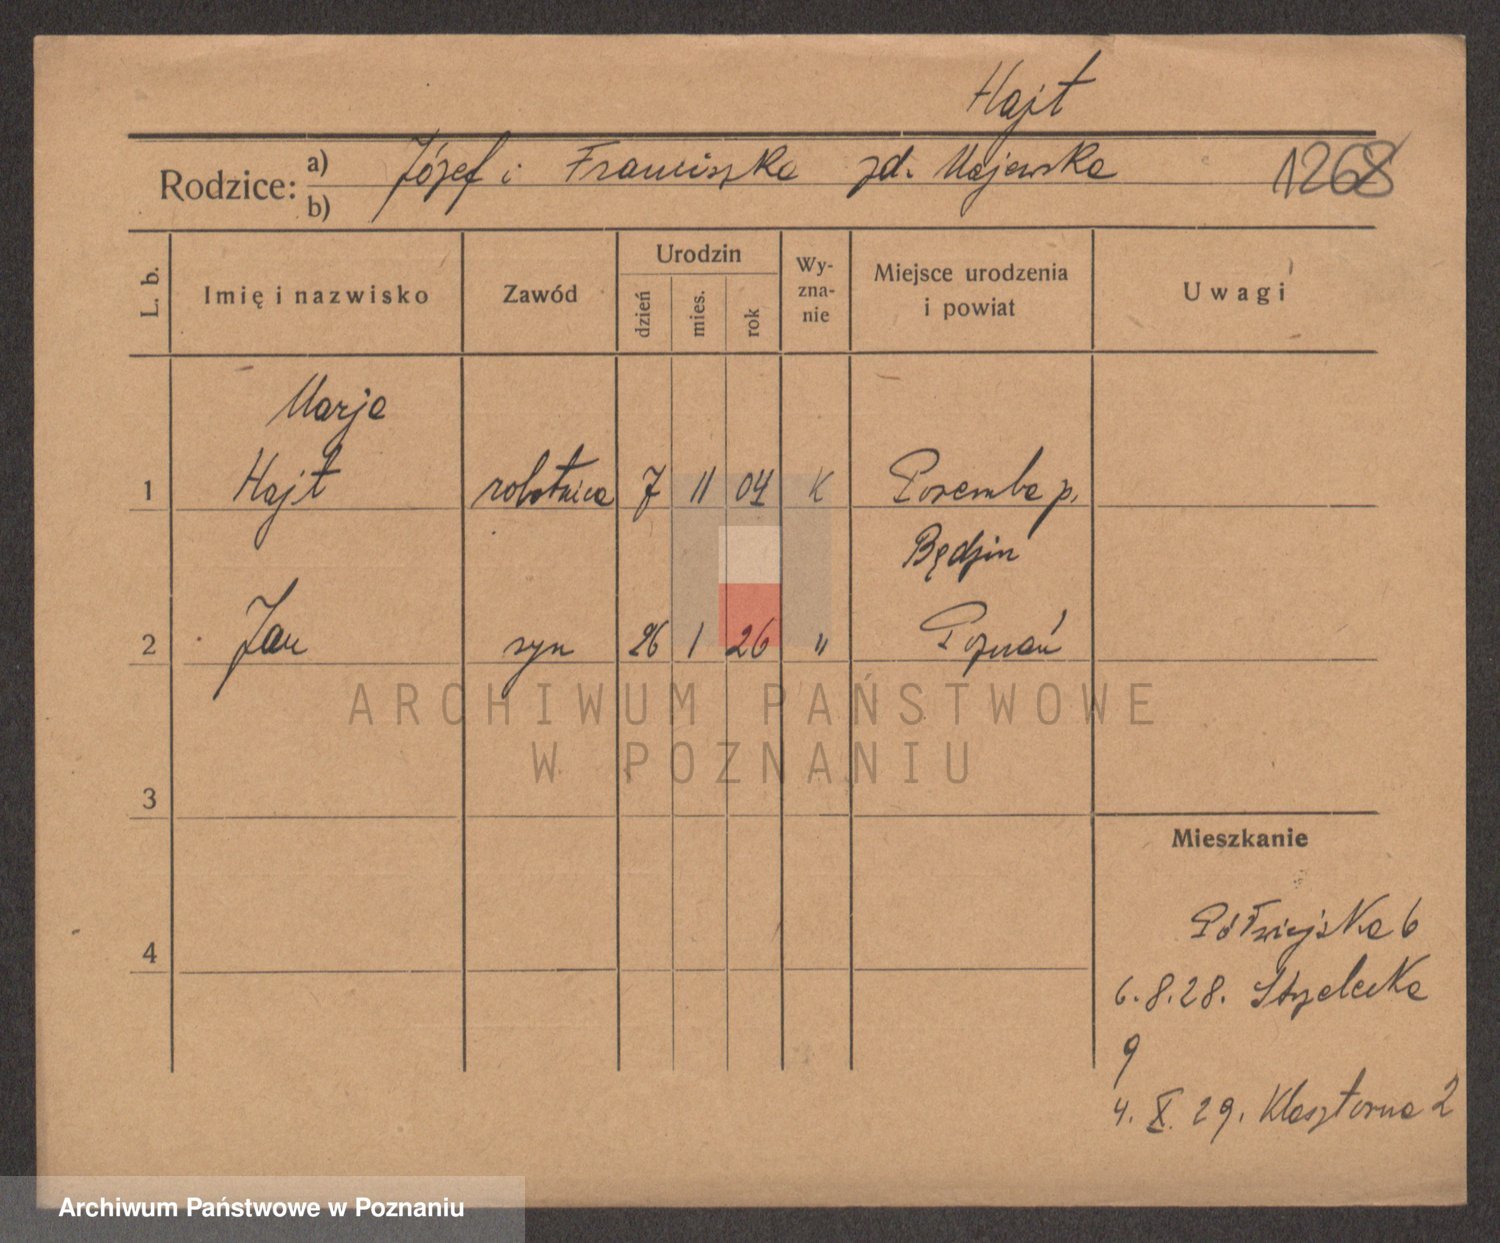 Hajt
Rodzice: a) Józef i Franciszka zd. Majewska 1268
b)
L. b. Imię i nazwisko Zawód Urodzin dzień mies. rok Wy-zna-nie Miejsce urodzenia i powiat Uwagi
Marja
1 Hajt robotnica 7 11 04 K Poremba p.
Będzin
2 Jan syn 26 1 26 " Poznań
ARCHIWUM PAŃSTWOWE
W POZNANIU
3
Mieszkanie
4 Półwiejska 6
6.8.28. Strzelecka
9
4. X. 29. Klasztorna 2
Archiwum Państwowe w Poznaniu